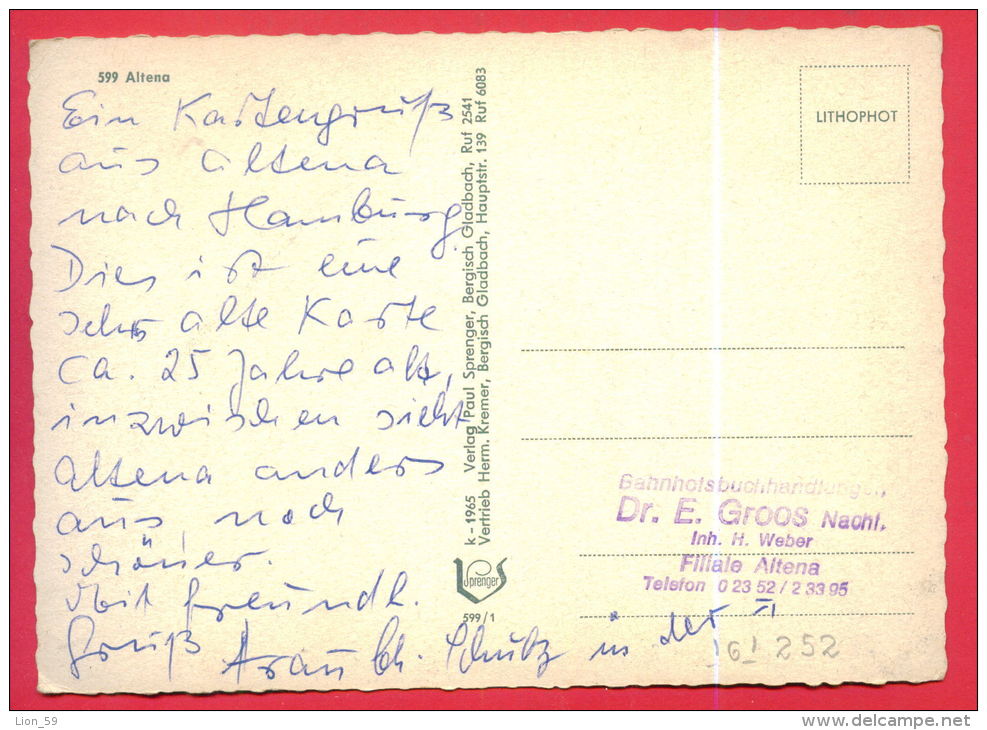 599 Altena
Ein Kartengruß
aus Altena
nach Hamburg.
Dies ist eine
sehr alte Karte
ca. 25 Jahre alt,
inzwischen sieht
Altena anders
aus, noch
schöner.
Mit freundl.
Gruß
Schütz in der
k - 1965 Verlag Paul Sprenger, Bergisch Gladbach, Ruf 2541
Vertrieb Herm. Kremer, Bergisch Gladbach, Hauptstr. 139 Ruf 6083
Sprenger
599/1
LITHOPHOT
Bahnhofsbuchhandlungen,
Dr. E. Groos Nachf.
Inh. H. Weber
Filiale Altena
Telefon 0 23 52 / 2 33 95
252
Lion_59
delcampe.net